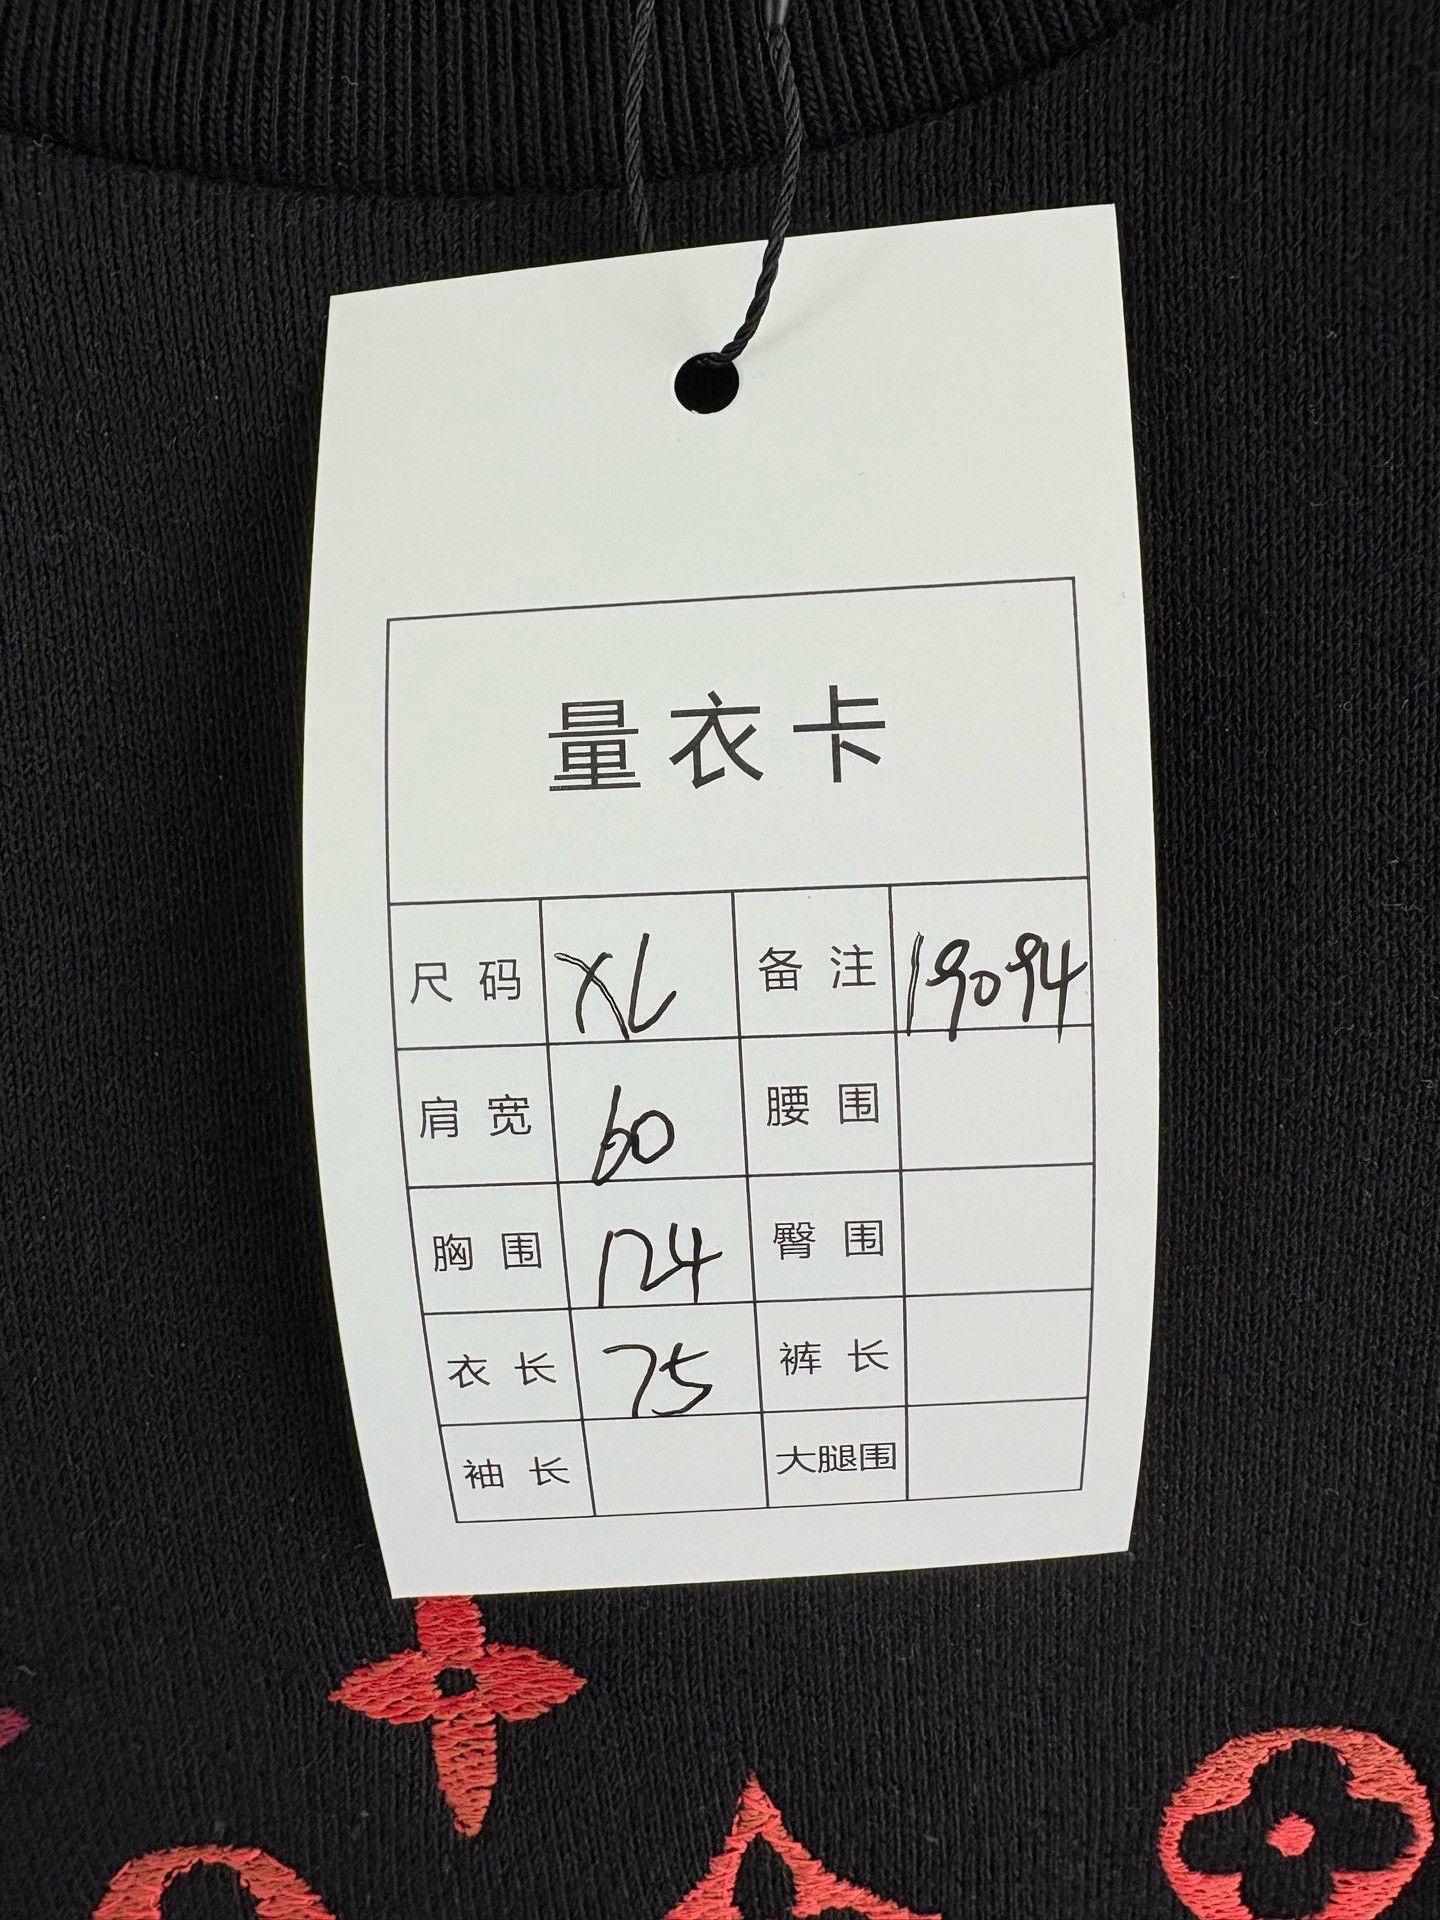 量衣卡
尺码 XL 备注 19094
肩宽 60 腰围
胸围 124 臀围
衣长 75 裤长
袖长 大腿围